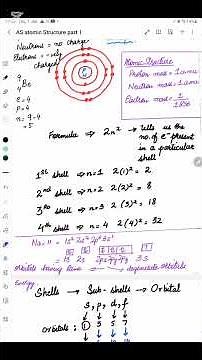 AS atomic Structure part 1
Neutrons = no charge
Electrons = -vely charged
9
4 Be
e = 4
P = 4
n = 9-4
= 5
Atomic Structure
Proton mass = 1 amu
Neutron mass = 1 amu
Electron mass = 1/1836
Formula ⇒ 2n² → tells us the no. of e⁻ present in a particular shell!
1st shell ⇒ n=1 2(1)² = 2
2nd shell ⇒ n=2 2(2)² = 8
3rd shell ⇒ n=3 2(3)² = 18
4th shell ⇒ n=4 2(4)² = 32
Na: 11 = 1s² 2s² 2p⁶ 3s¹
1s 2s 2px 2py 2pz 3s
Orbitals having same → degenerate orbitals
Energy
Shells → Sub-shells → Orbital
s, p, d, f
orbitals: 1 3 5 7